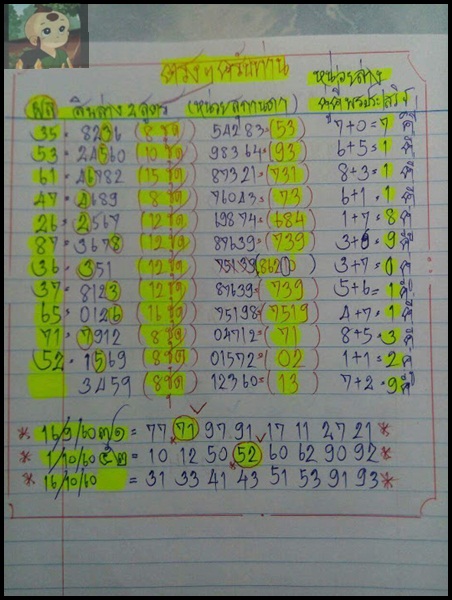 ตรงๆครับท่าน
หน่วยล่าง
ผล ดินล่าง 2 สูตร (หน่วยสุทานดา)
35 = 8236 (8 ชุด) 54283 = (53) 7+0=7
53 = 24560 (10 ชุด) 98364 = (93) 6+5=1
61 = 46782 (15 ชุด) 87321 = (731) 8+3=1
47 = 4689 (8 ชุด) 76043 = (73) 6+1=1
26 = 2567 (12 ชุด) 69874 = (684) 1+7=8
87 = 3678 (12 ชุด) 87639 = (739) 3+6=9
36 = 351 (12 ชุด) 75139 (8620) 3+7=0
37 = 8123 (12 ชุด) 87639 = (739) 5+6=1
65 = 0126 (16 ชุด) 75198 = (7519) 4+7=1
71 = 7912 (8 ชุด) 04712 = (71) 8+5=3
52 = 1569 (8 ชุด) 01572 = (02) 1+1=2
3459 (8 ชุด) 12360 = (13) 7+2=9
* 16/9/60 = 77 71 97 91 17 11 27 21 *
* 1/10/60 = 10 12 50 52 60 62 90 92 *
* 16/10/60 = 31 33 41 43 51 53 91 93 *